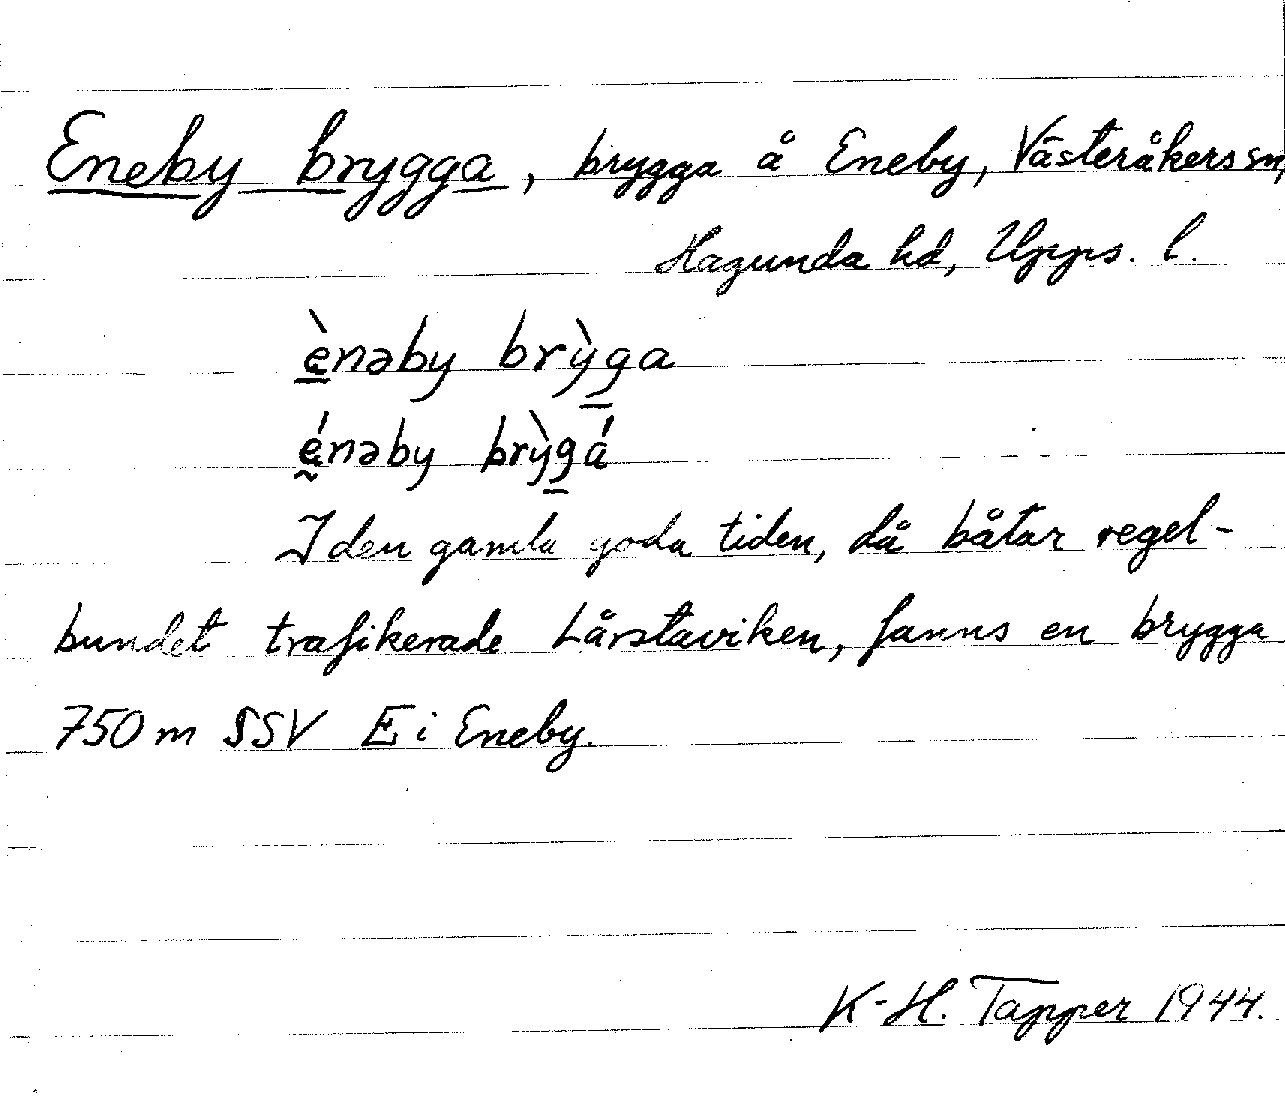 Eneby brygga, brygga å Eneby, Västeråkers sn,
Hagunda hd, Upps. l.
è̱nəby brỳg̱a
ḛ́nəby brỳg̱á
I den gamla goda tiden, då båtar regel-
bundet trafikerade Lårstaviken, fanns en brygga
750 m SSV E i Eneby.
K-H. Tapper 1944.